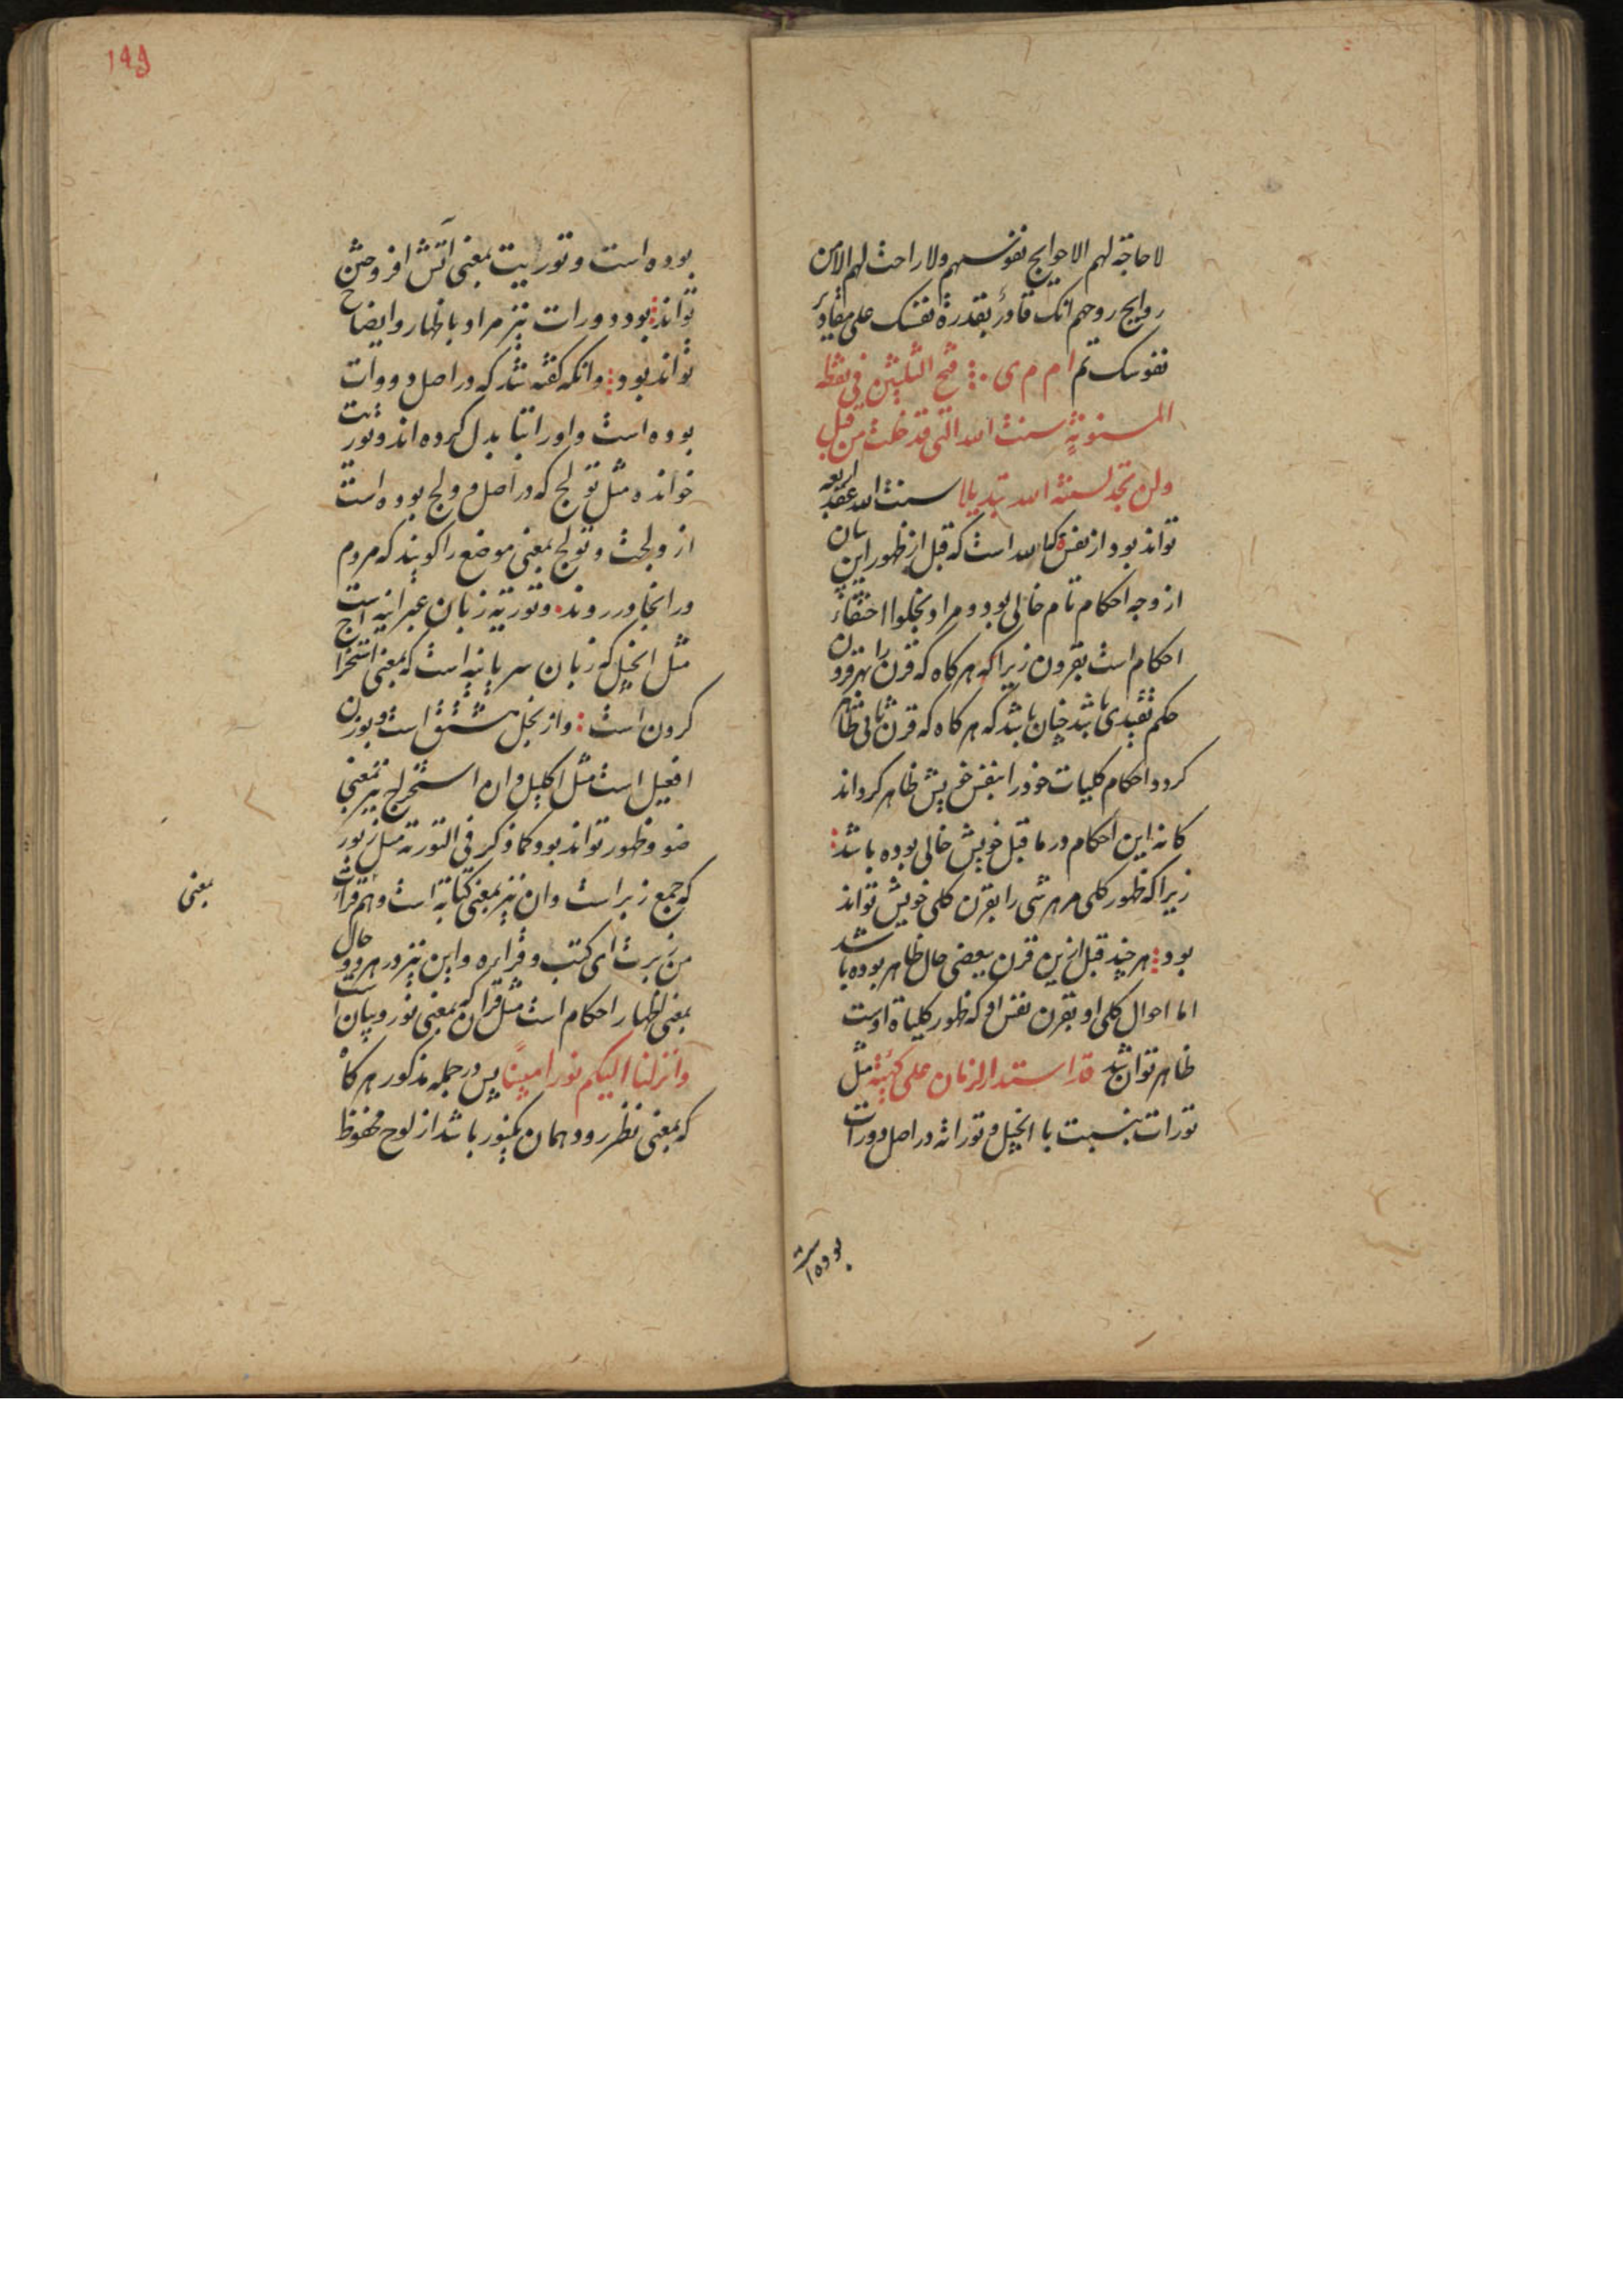 لا حاجة لهم الا حوایج نفوسهم ولا راحت لهم الا من
روایج روحهم انک قادرٌ بقدرة نفسک علی مقادیر
نفوسک تم ام م ی فتح الثلیثن فی نقطه
المسنونةٍ سنت الله التی قد خلت من قبل
ولن تجد لسنة الله تبدیلا سنت الله اربعه عقد
تواند بود از نفس کتاب الله است که قبل از ظهور این بیان
از وجه احکام تام خالی بود و مراد بخلوا اختفاء
احکام است بقرون زیرا که هر کاه که قرن را بهر قرون
حکم تقیدی باشد چنان باشد که هر کاه که قرن ثانی ظاهر
کردد احکام کلیات خود را بنفس خویش ظاهر کرداند
کانه این احکام در ما قبل خویش خالی بوده باشد
زیرا که ظهور کلی مر هر شی را بقرن کلی خویش تواند
بود هر چند قبل ازین قرن ببعضی حال ظاهر بوده باشد
اما احوال کلی او بقرن نفس او که ظهور کلیاة اوست
ظاهر توان شد قد استدار الزمان علی کهیئة مثل
تورات بنسبت با انجیل و توراته در اصل دورات
بوده است
۱۹۹
بوده است و توراییت بمعنی آتش افروختن
تواند بود و دورات نیز مراد باظهار و ایضاح
تواند بود و انکه کفته شد که در اصل دووات
بوده است واو را بتا بدل کرده اند و توریت
خوانده مثل تولج که در اصل وولج بوده است
از ولجت و تولج بمعنی موضع را کویند که مردم
در انجا در روند و توریة زبان عبرانیه است
مثل انجیل که زبان سریانیه است که بمعنی استخراج
کردن است و از نجل مشتق است و بوزن
افعیل است مثل اکلیل و ان استخراج نیز بمعنی
ضو و ظهور تواند بود کما ذکر فی التوریة مثل زبور
که جمع زبر است و ان نیز بمعنی کتابة است و هم قراءت
من زبرت ای کتب و قرایره و این نیز در هر دو حال
بمعنی اظهار احکام است مثل قران که بمعنی نور و بیان است
وانزلنا الیکم نورا مبینًا پس در جمله مذکور هر کاه
که بمعنی نظر رود همان یکنور باشد از لوح محفوظ
بمعنی